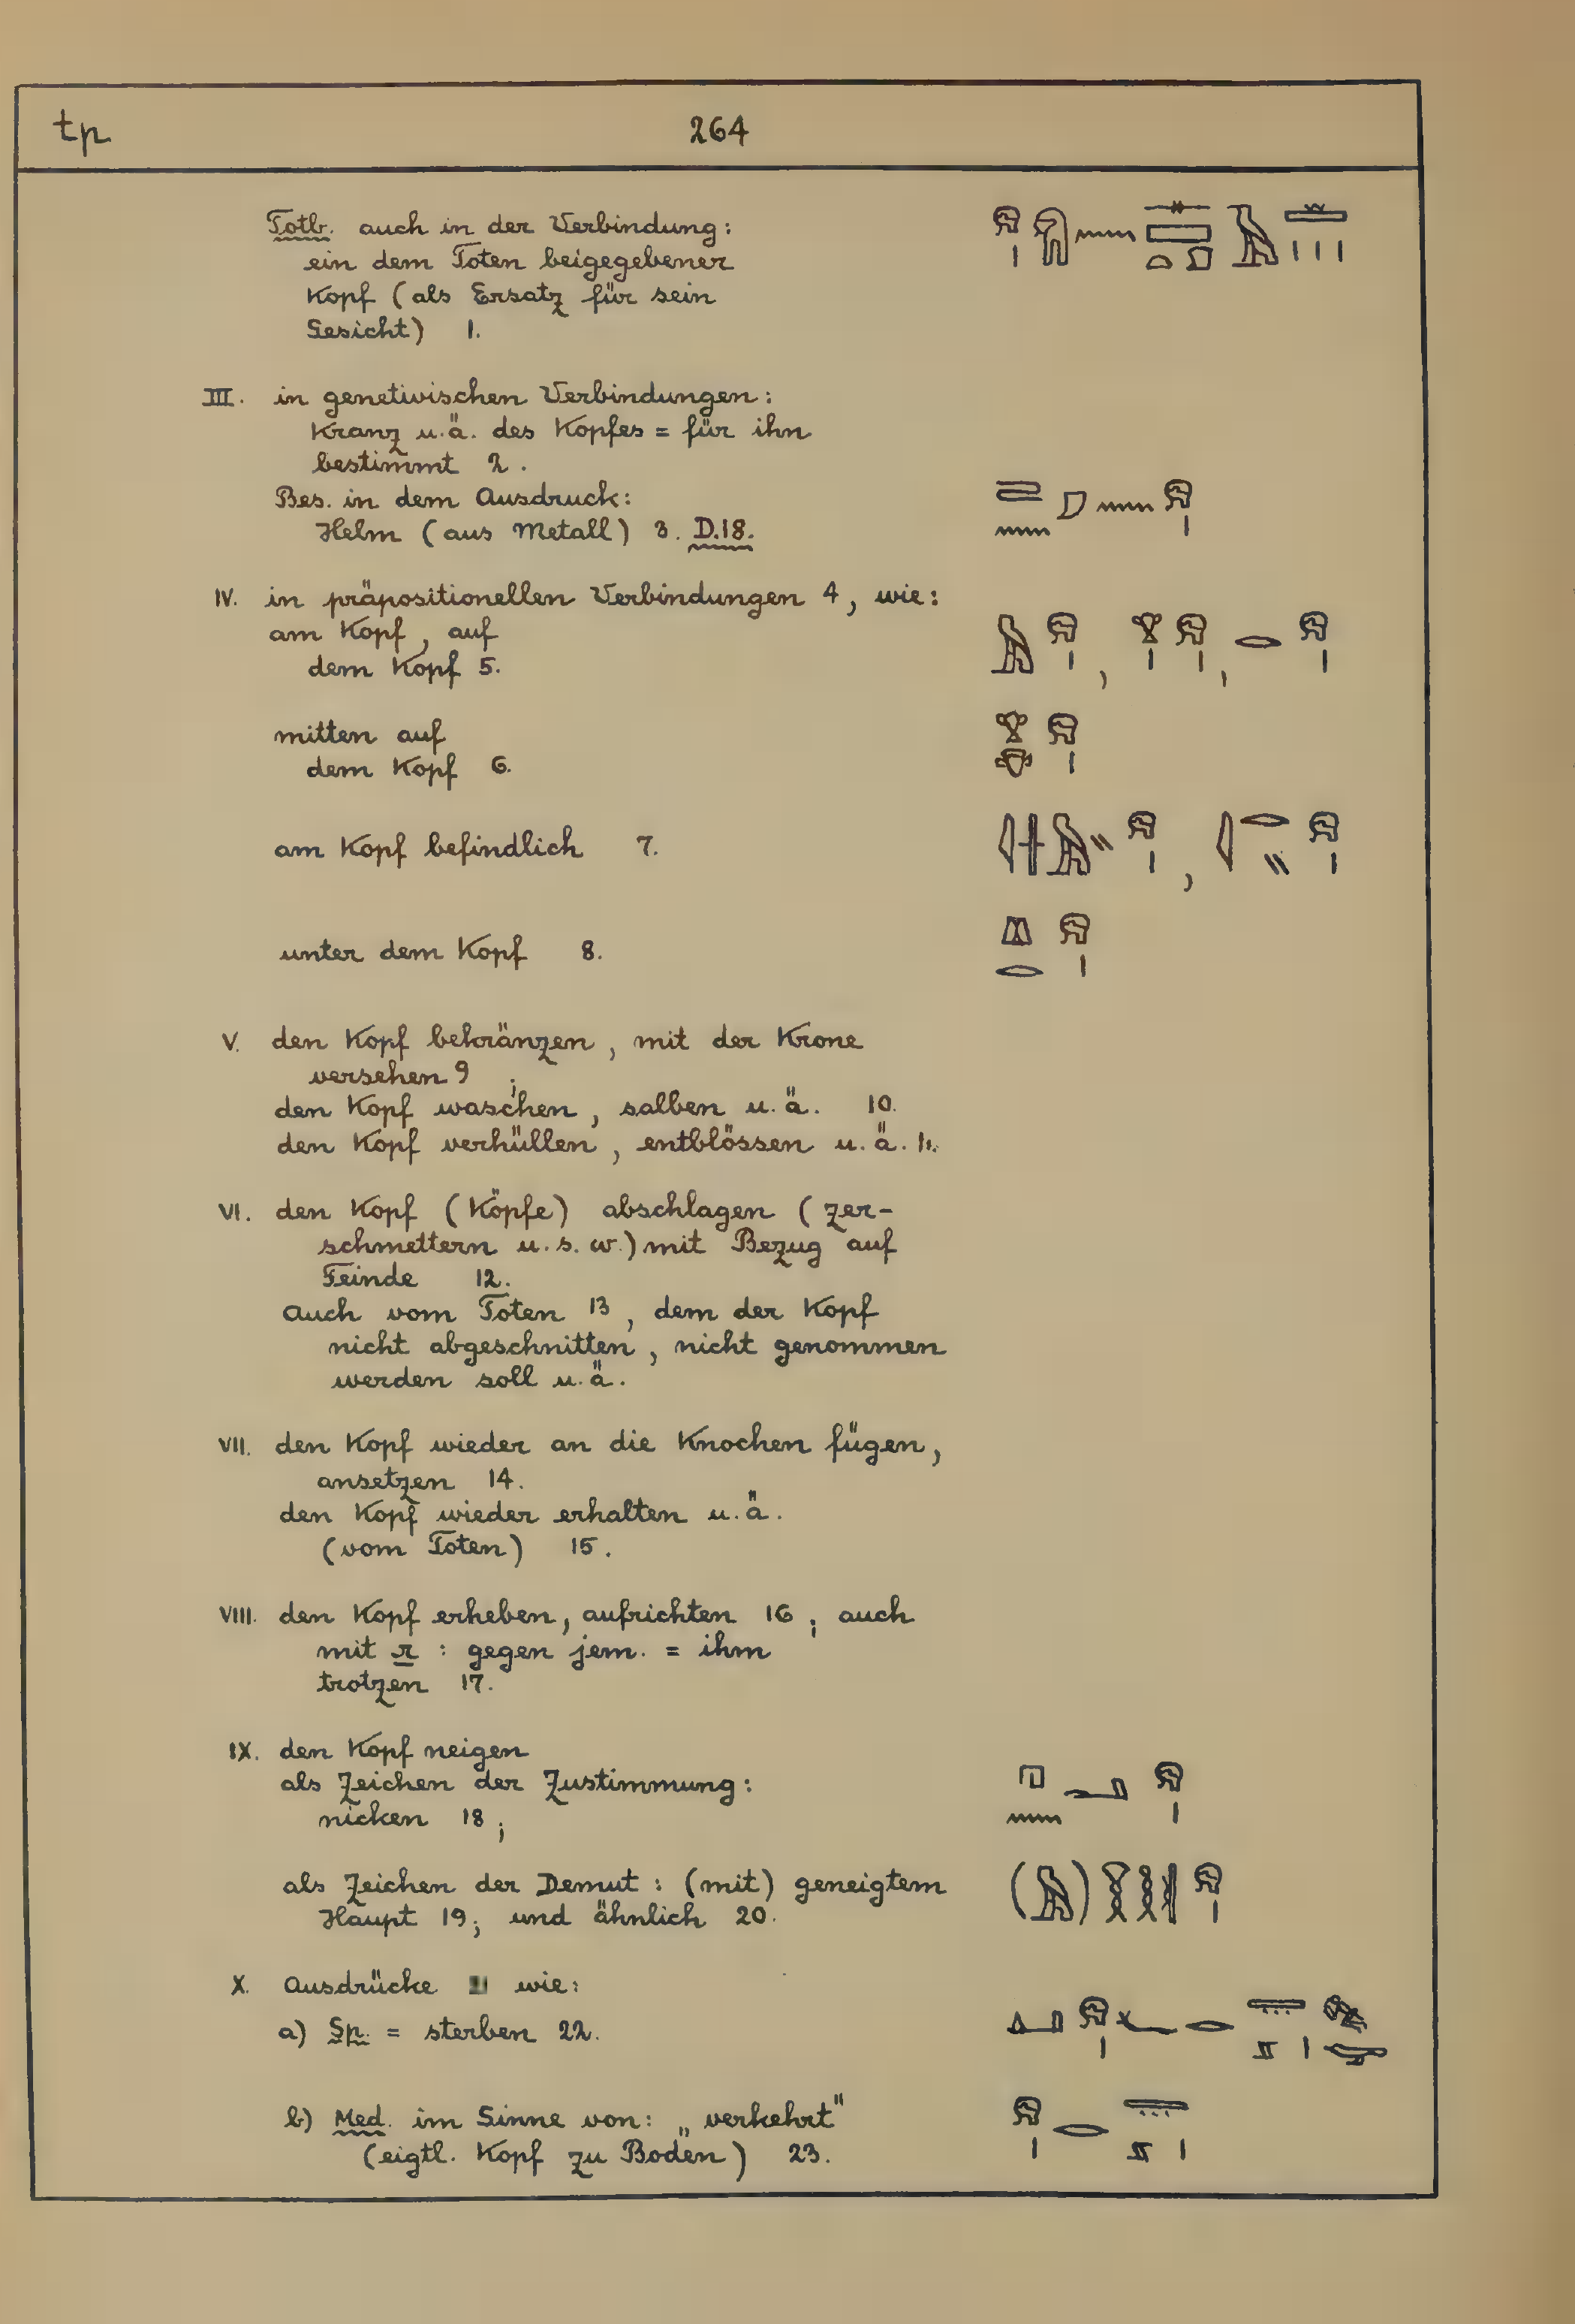 tp 264
Totb. auch in der Verbindung:
ein dem Toten beigegebener
Kopf (als Ersatz für sein
Gesicht) 1.
III. in genetivischen Verbindungen:
Kranz u.ä. des Kopfes = für ihn
bestimmt 2.
Bes. in dem Ausdruck:
Helm (aus Metall) 3. D.18.
IV. in präpositionellen Verbindungen 4, wie:
am Kopf, auf
dem Kopf 5.
mitten auf
dem Kopf 6.
am Kopf befindlich 7.
unter dem Kopf 8.
V. den Kopf bekränzen, mit der Krone
versehen 9;
den Kopf waschen, salben u.ä. 10.
den Kopf verhüllen, entblössen u.ä. 11.
VI. den Kopf (Köpfe) abschlagen (zer-
schmettern u.s.w.) mit Bezug auf
Feinde 12.
Auch vom Toten 13, dem der Kopf
nicht abgeschnitten, nicht genommen
werden soll u.ä.
VII. den Kopf wieder an die Knochen fügen,
ansetzen 14.
den Kopf wieder erhalten u.ä.
(vom Toten) 15.
VIII. den Kopf erheben, aufrichten 16; auch
mit r : gegen jem. = ihm
trotzen 17.
IX. den Kopf neigen
als Zeichen der Zustimmung:
nicken 18;
als Zeichen der Demut: (mit) geneigtem
Haupt 19; und ähnlich 20.
X. Ausdrücke wie:
a) Sp. = sterben 22.
b) Med. im Sinne von: „verkehrt"
(eigtl. Kopf zu Boden) 23.